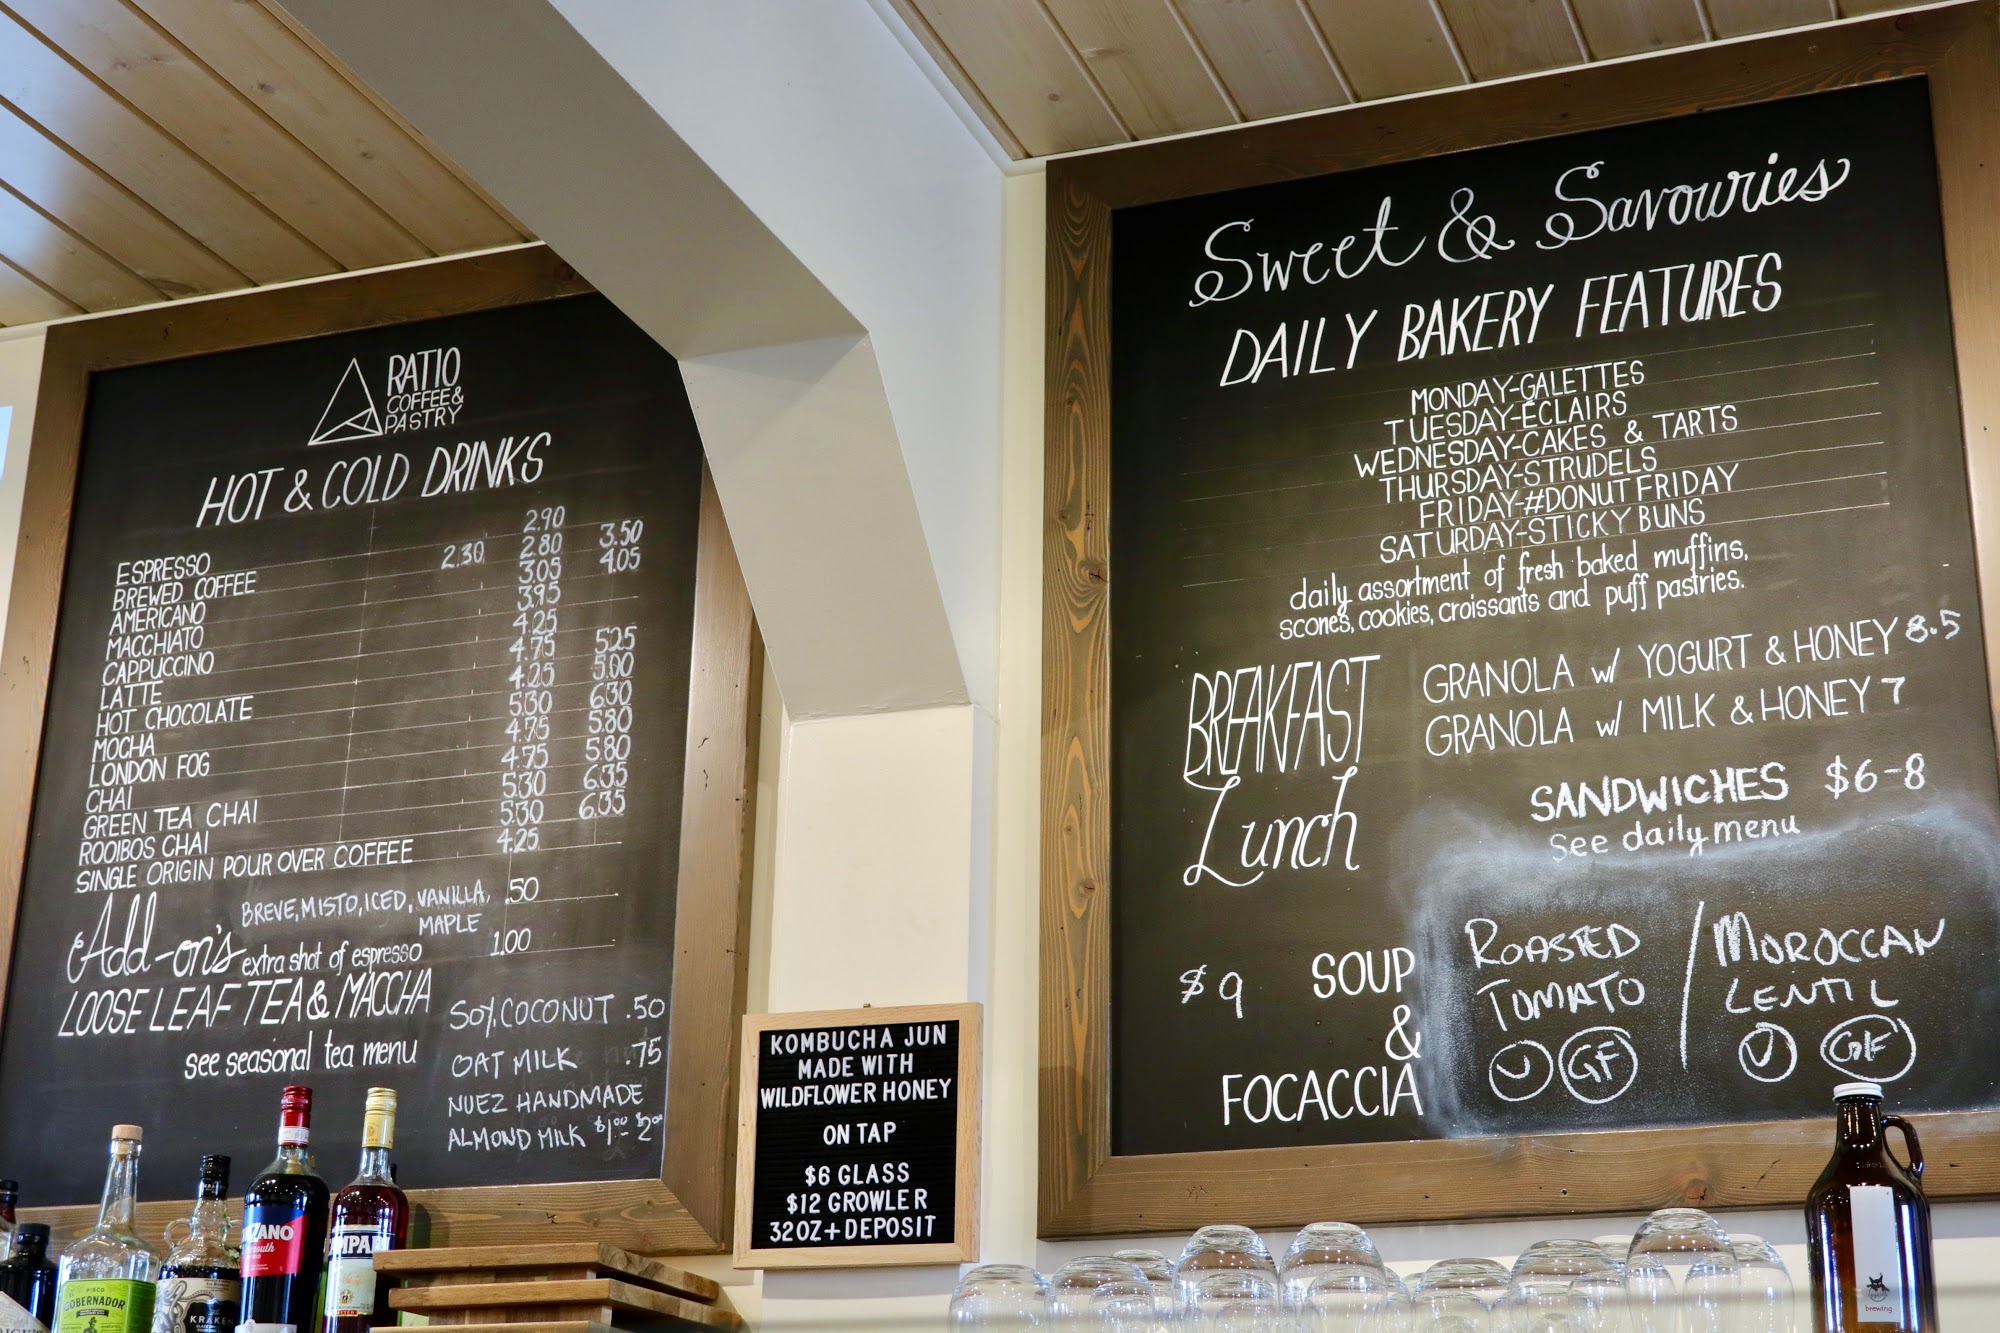 RATIO
COFFEE &
PASTRY
HOT & COLD DRINKS
ESPRESSO 2.90
BREWED COFFEE 2.30 2.80 3.50
AMERICANO 3.05 4.05
MACCHIATO 3.95
CAPPUCCINO 4.25
LATTE 4.75 5.25
HOT CHOCOLATE 4.25 5.00
MOCHA 5.30 6.30
LONDON FOG 4.75 5.80
CHAI 4.75 5.80
GREEN TEA CHAI 5.30 6.35
ROOIBOS CHAI 5.30 6.35
SINGLE ORIGIN POUR OVER COFFEE 4.25
Add-on's BREVE, MISTO, ICED, VANILLA, .50
MAPLE
extra shot of espresso 1.00
LOOSE LEAF TEA & MACCHA
see seasonal tea menu
SOY, COCONUT .50
OAT MILK .75
NUEZ HANDMADE
ALMOND MILK $1.00 - $2.00
KOMBUCHA JUN
MADE WITH
WILDFLOWER HONEY
ON TAP
$6 GLASS
$12 GROWLER
32OZ+DEPOSIT
Sweet & Savouries
DAILY BAKERY FEATURES
MONDAY-GALETTES
TUESDAY-ÉCLAIRS
WEDNESDAY-CAKES & TARTS
THURSDAY-STRUDELS
FRIDAY-#DONUTFRIDAY
SATURDAY-STICKY BUNS
daily assortment of fresh baked muffins,
scones, cookies, croissants and puff pastries.
BREAKFAST
GRANOLA w/ YOGURT & HONEY 8.5
GRANOLA w/ MILK & HONEY 7
Lunch
SANDWICHES $6-8
See daily menu
$9 SOUP
&
FOCACCIA
ROASTED
TOMATO
V GF
/ MOROCCAN
LENTIL
V GF
PISCO
GOBERNADOR
KRAKEN
ZANO
MPAR
brewing